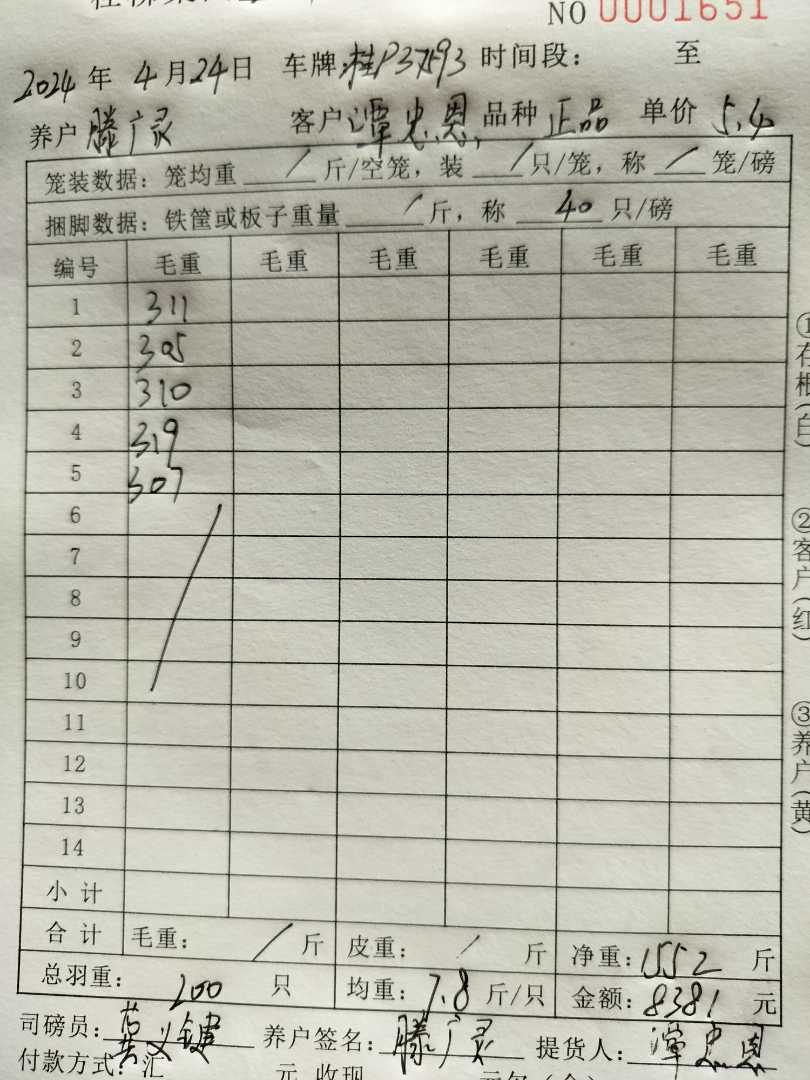 NO 0001651
2024 年 4 月 24 日 车牌:桂P37593 时间段: 至
养户 滕广灵 客户 潭忠恩 品种 正品 单价 5.4
笼装数据: 笼均重 / 斤/空笼, 装 / 只/笼, 称 / 笼/磅
捆脚数据: 铁筐或板子重量 / 斤, 称 40 只/磅
编号 毛重 毛重 毛重 毛重 毛重 毛重
1 311
2 305
3 310
4 319
5 307
6
7
8
9
10
11
12
13
14
小计
合计 毛重: / 斤 皮重: / 斤 净重: 1552 斤
总羽重: 200 只 均重: 7.8 斤/只 金额: 8381 元
司磅员: 黄义键 养户签名: 滕广灵 提货人: 潭忠恩
付款方式: 汇 元 收现
①存根(白)
②客户(红)
③养户(黄)